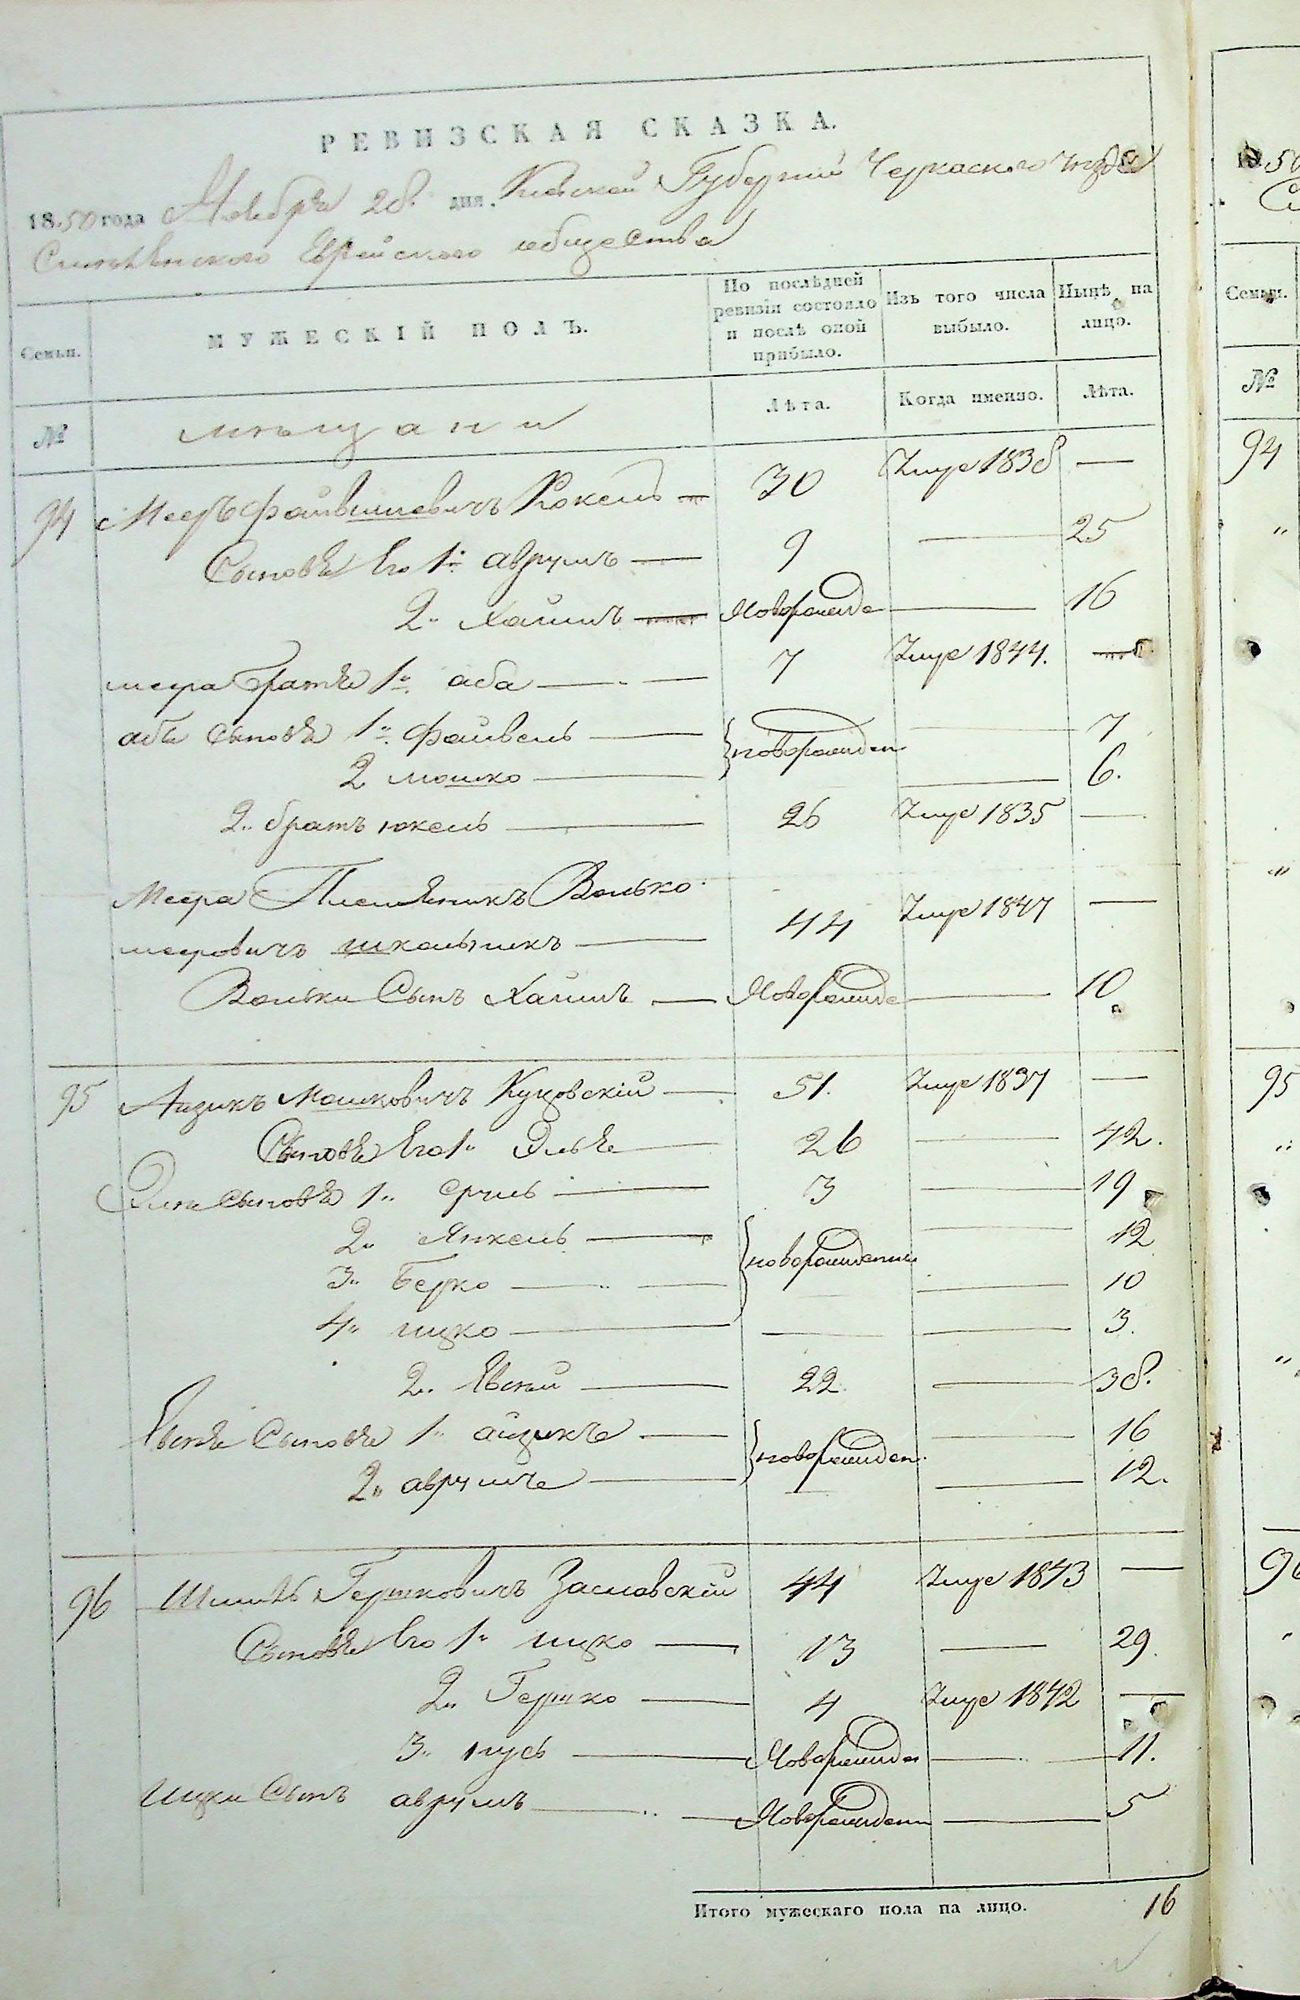 РЕВИЗСКАЯ СКАЗКА.
1850 года Октября 28 дня. Кіевской Губерніи Черкаскаго уезда
Еврейского общества
Семьи.
МУЖЕСКІЙ ПОЛЪ.
По послѣдней ревизіи состояло и послѣ оной прибыло.
Изъ того числа выбыло.
Нынѣ на лицо.
№
мѣщани
Лѣта.
Когда именно.
Лѣта.
94 Мееръ Файвишевичъ Кокель — 30 Умре 1838 —
Сыновья Его 1й аврумъ — 9 — 25
2. Хаимъ — Новорожде — 16
меера братья 1й аба — 7 Умре 1844. —
абы сыновья 1й файвель — новорожден — 7
2 мошко — — 6.
2. братъ юкель — 26 Умре 1835 —
Меера Племяникъ Волько
мееровичъ школьникъ — 44 Умре 1847 —
Вольки Сынъ Хаимъ — Новорожде — 10
95 Аизикъ Мошковичъ Куцовскій — 51. Умре 1837 —
Сыновья Его 1. Элья — 26 — 42.
Эли сыновья 1. сруль — 3 — 19
2. Янкель — новорожденни — 12
3. Берко — — 10
4. ицко — — 3.
2. Евсей — 22. — 38.
Евсея Сыновья 1. айзикъ — новорожден. — 16
2. аврумъ — — 12.
96 Шмиль Гершковичъ Заславскій 44 Умре 1843 —
Сыновья Его 1. ицко — 13 — 29.
2. Гершко — 4 Умре 1842 —
3. нусь — Новорожде — 11.
Ицки Сынъ аврумъ — Новорожденн — 5
Итого мужескаго пола на лицо. 16
1850
Семьи.
№
94
"
"
95
"
"
"
96
"